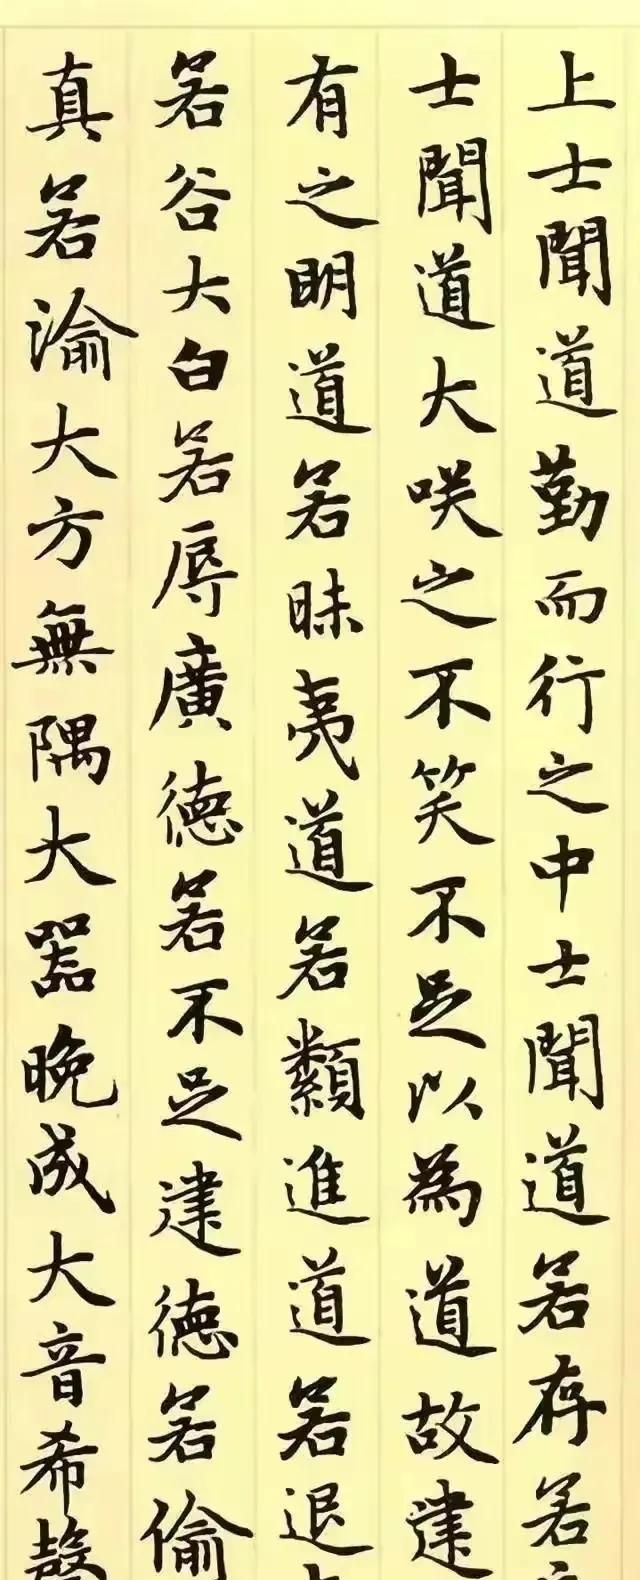 上士聞道勤而行之中士聞道若存若
士聞道大咲之不笑不足以為道故建
有之明道若昧夷道若纇進道若退
若谷大白若辱廣德若不足建德若偷
真若渝大方無隅大器晚成大音希聲